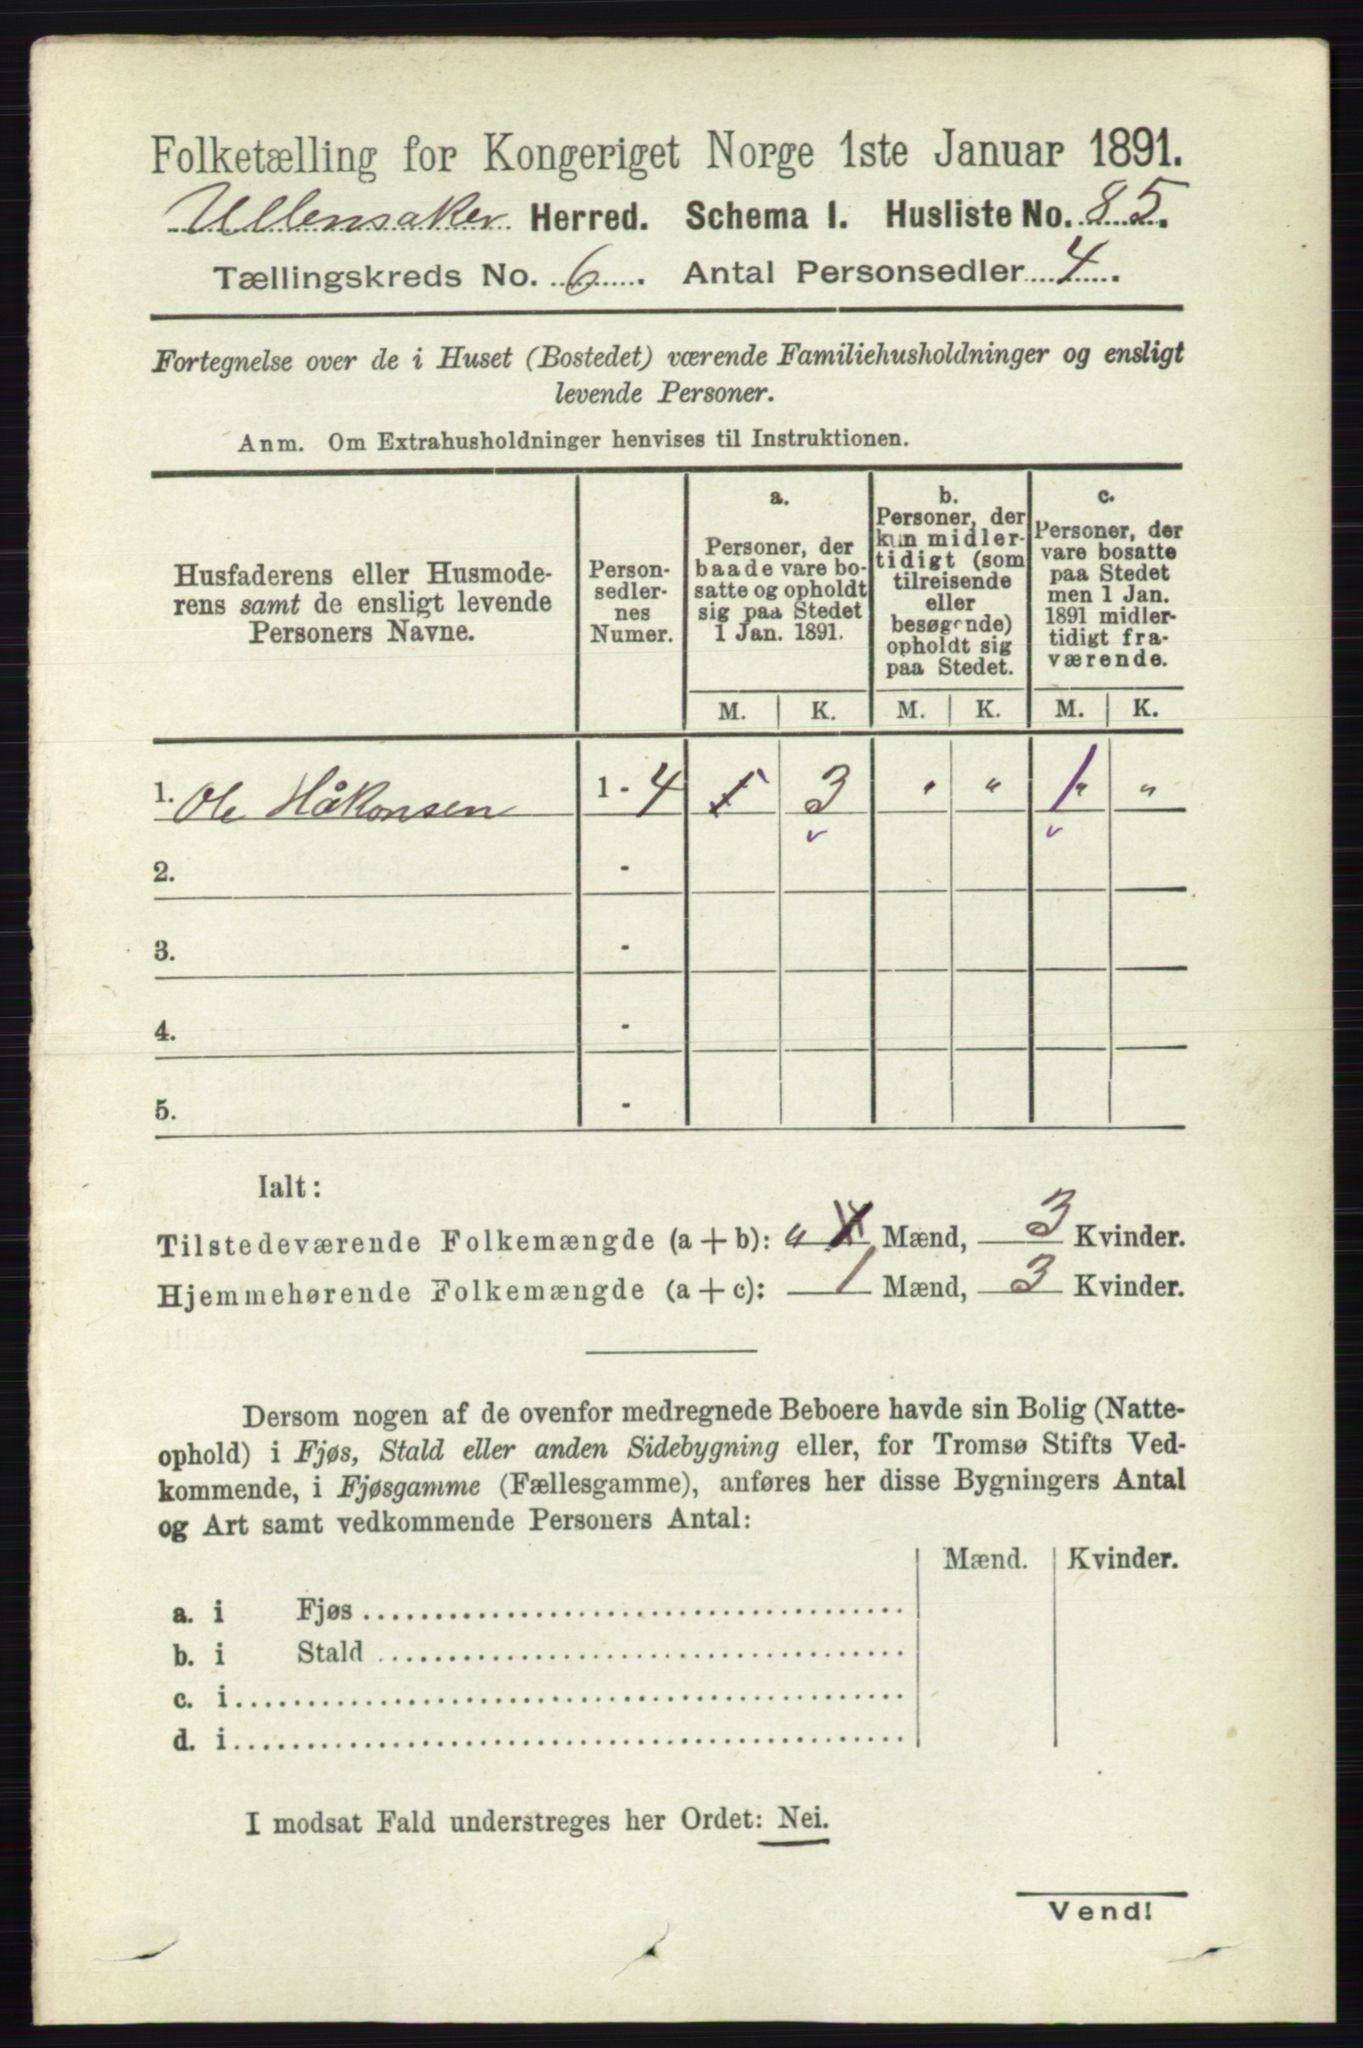 Folketælling for Kongeriget Norge 1ste Januar 1891.
Ullensaker Herred. Schema 1. Husliste No. 85.
Tællingskreds No. 6. Antal Personsedler 4.
Fortegnelse over de i Huset (Bostedet) værende Familiehusholdninger og ensligt
levende Personer.
Anm. Om Extrahusholdninger henvises til Instruktionen.
Husfaderens eller Husmode-
rens samt de ensligt levende
Personers Navne.
Person-
sedler-
nes
Numer.
a.
Personer, der
baade vare bo-
satte og opholdt
sig paa Stedet
1 Jan. 1891.
b.
Personer, der
kun midler-
tidigt (som
tilreisende
eller
besøgende)
opholdt sig
paa Stedet.
c.
Personer, der
vare bosatte
paa Stedet
men 1 Jan.
1891 midler-
tidigt fra-
værende.
M. K. M. K. M. K.
1. Ole Håkonsen 1 - 4 3 " " 1 " "
2. -
3. -
4. -
5. -
Ialt:
Tilstedeværende Folkemængde (a + b): " Mænd, 3 Kvinder.
Hjemmehørende Folkemængde (a + c): 1 Mænd, 3 Kvinder.
Dersom nogen af de ovenfor medregnede Beboere havde sin Bolig (Natte-
ophold) i Fjøs, Stald eller anden Sidebygning eller, for Tromsø Stifts Ved-
kommende, i Fjøsgamme (Fællesgamme), anføres her disse Bygningers Antal
og Art samt vedkommende Personers Antal:
Mænd. Kvinder.
a. i Fjøs
b. i Stald
c. i
d. i
I modsat Fald understreges her Ordet: Nei.
Vend!